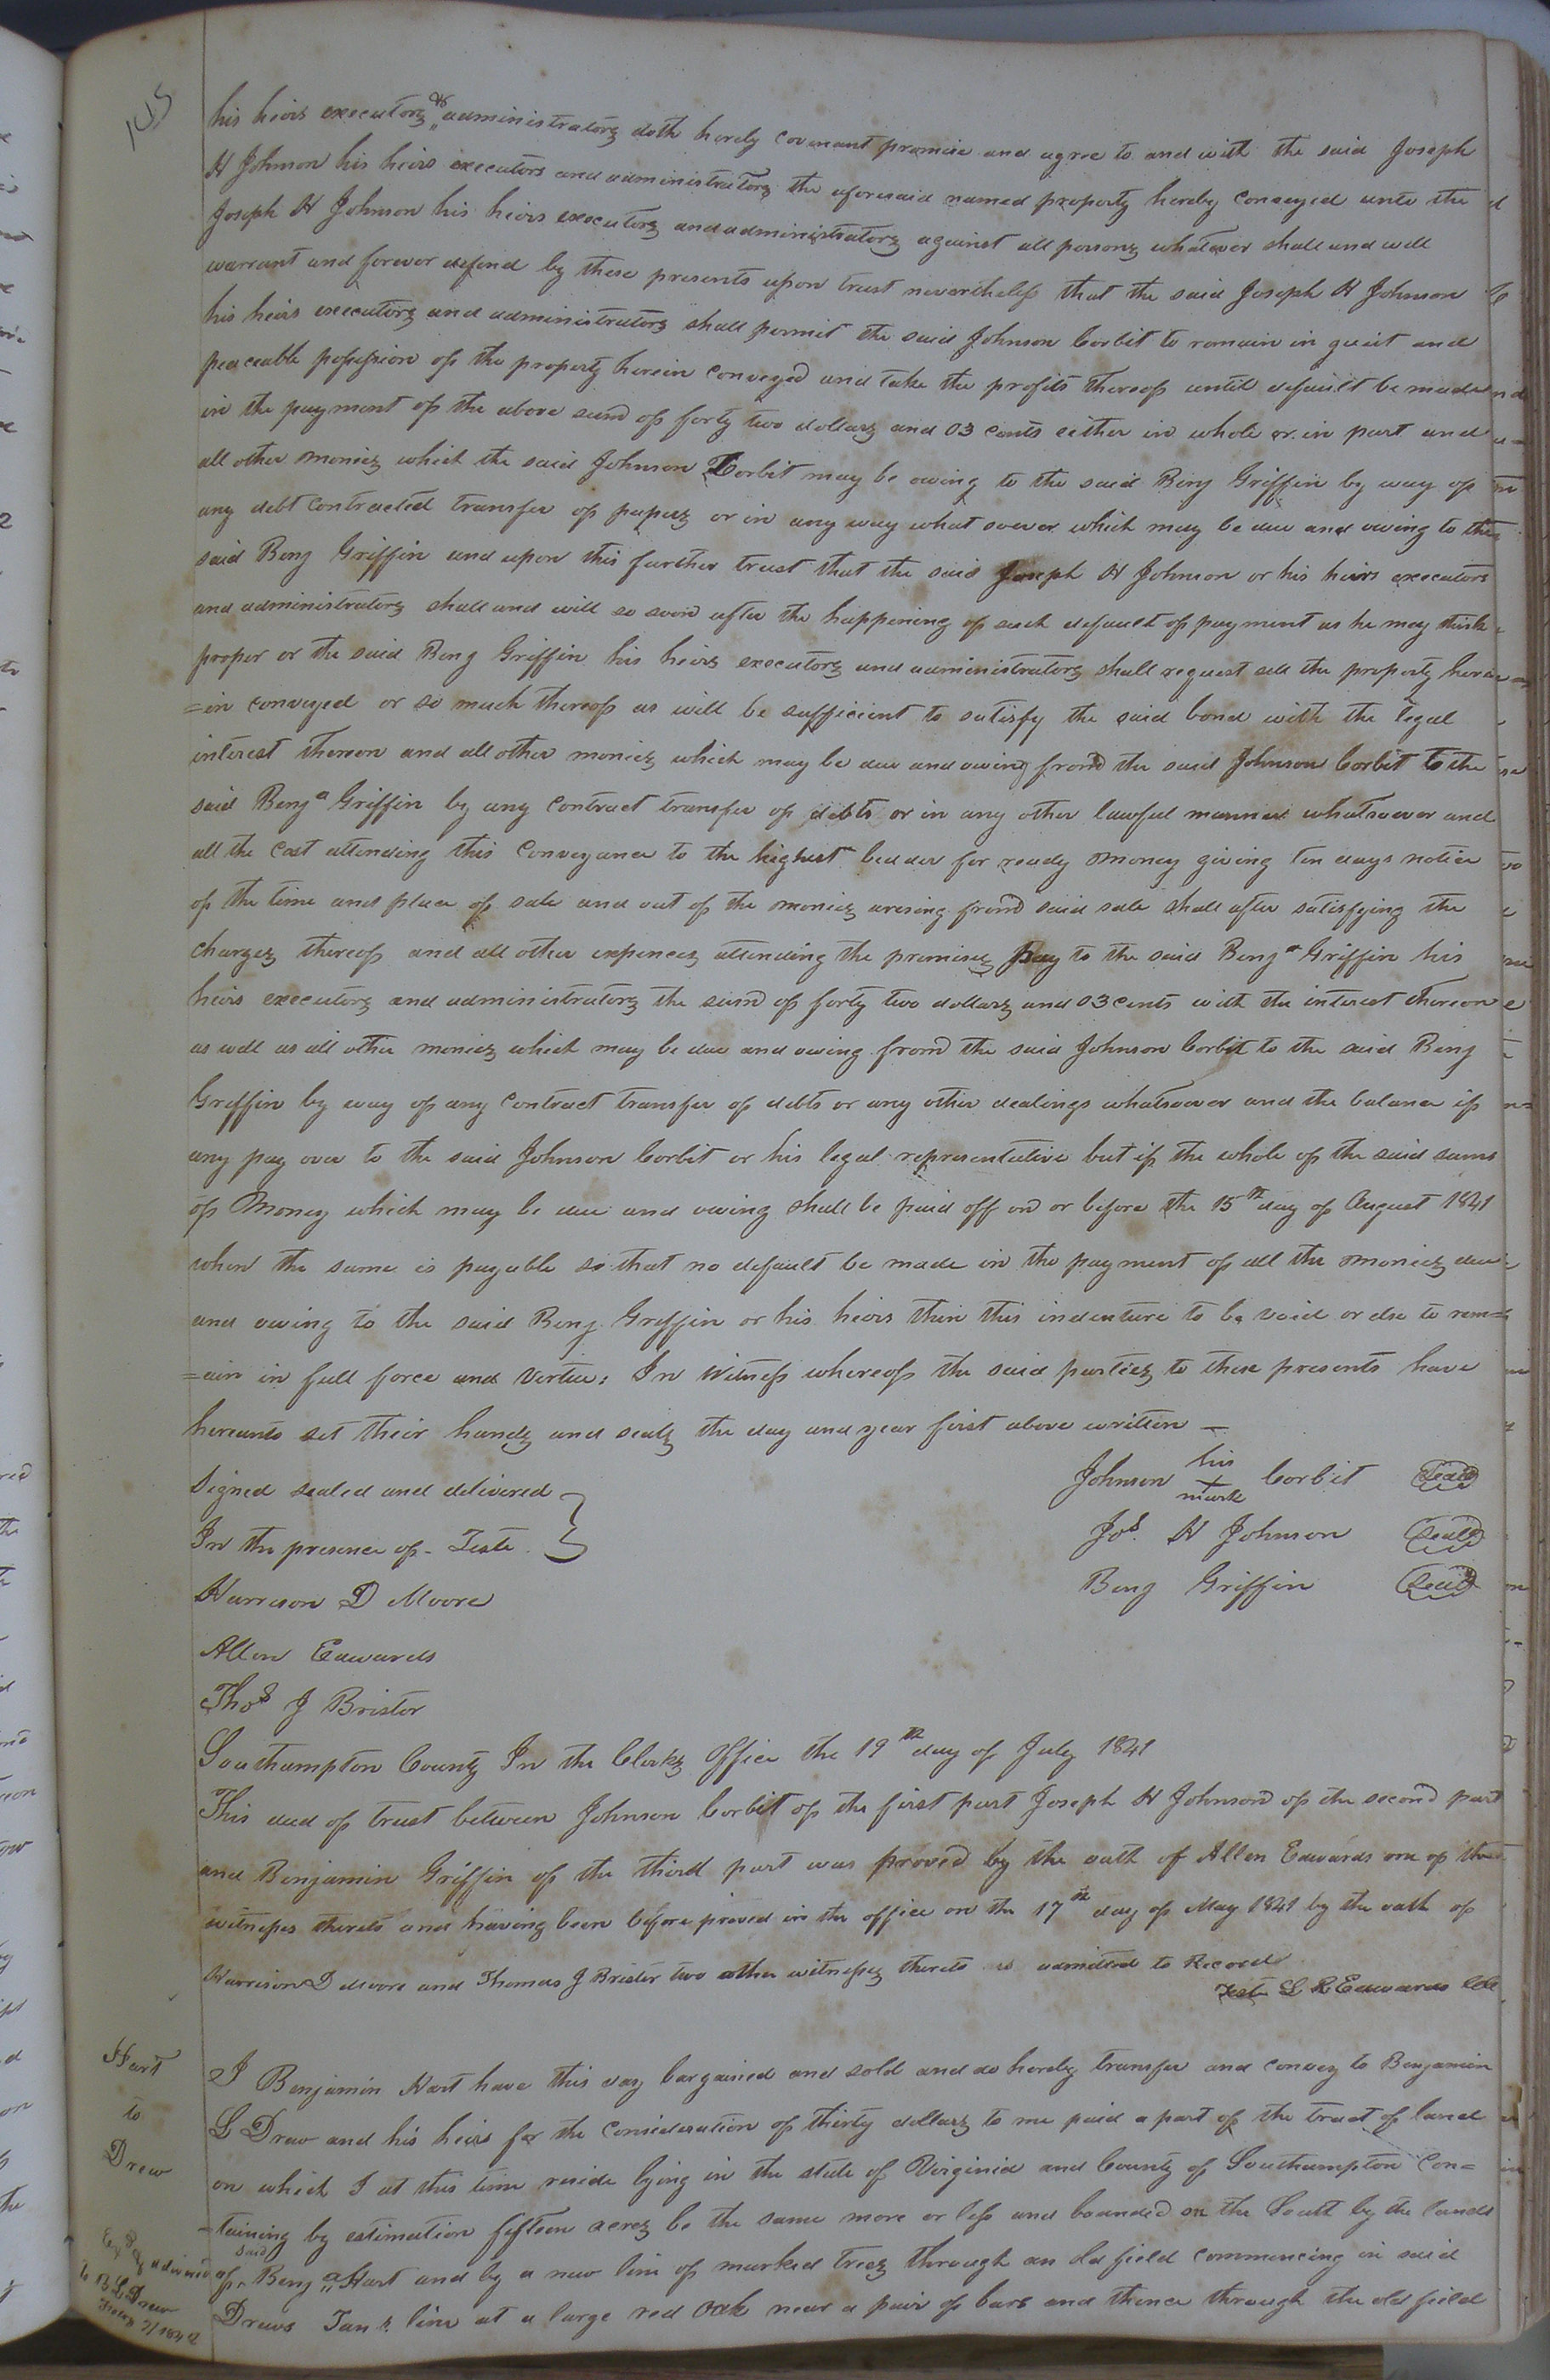 his heirs executors & administrators doth hereby covenant promise and agree to and with the said Joseph
H Johnson his heirs executors and administrators the aforesaid named property hereby conveyed unto the
Joseph H Johnson his heirs executors and administrators against all persons whatever shall and will
warrant and forever defend by these presents upon trust nevertheless that the said Joseph H Johnson
his heirs executors and administrators shall permit the said Johnson Corbit to remain in quiit and
peaceable possession of the property herein conveyed and take the profits thereof until default be made
in the payment of the above sum of forty two dollars and 03 cents either in whole or in part and
all other monies which the said Johnson Corbit may be owing to the said Benj Griffin by way of
any debt contracted transfer of papers or in any way what soever which may be due and owing to the
said Benj Griffin and upon this further trust that the said Joseph H Johnson or his heirs executors
and administrators shall and will so soon after the happening of such default of payment as he may think
proper or the said Benj Griffin his heirs executors and administrators shall request sell the property here
=in conveyed or so much thereof as will be sufficient to satisfy the said bond with the legal
interest thereon and all other monies which may be due and owing from the said Johnson Corbit to the
said Benjª Griffin by any contract transfer of debts or in any other lawful manner whatsoever and
all the cost attending this conveyance to the highest bidder for ready money giving ten days notice
of the time and place of sale and out of the monies arising from said sale shall after satisfying the
charges thereof and all other expences attending the premises pay to the said Benjª Griffin his
heirs executors and administrators the sum of forty two dollars and 03 cents with the interest thereon
as well as all other monies which may be due and owing from the said Johnson Corbit to the said Benj
Griffin by way of any contract transfer of debts or any other dealings whatsoever and the balance if
any pay over to the said Johnson Corbit or his legal representative but if the whole of the said sums
of Money which may be due and owing shall be paid off on or before the 15th day of August 1841
when the same is payable so that no default be made in the payment of all the monies due
and owing to the said Benj Griffin or his heirs then this indenture to be void or else to rem=
=ain in full force and virtue: In Witness whereof the said parties to these presents have
hereunto set their hands and seals the day and year first above written —
Signed sealed and delivered
In the presence of - Teste
Johnson his + mark Corbit Seal
Jos. H Johnson Seal
Benj Griffin Seal
Harrison D Moore
Allen Edwards
Thos J Bristor
Southampton County In the Clerks Office the 19th day of July 1841
This deed of trust between Johnson Corbit of the first part Joseph H Johnson of the second part
and Benjamin Griffin of the third part was proved by the oath of Allen Edwards one of the
witnesses thereto and having been before proved in the office on the 17th day of May 1841 by the oath of
Harrison D Moore and Thomas J Brister two other witnesses thereto is admitted to Record
Test L R Edwards
Hart
to
Drew
I Benjamin Hart have this day bargained and sold and do hereby transfer and convey to Benjamin
L Drew and his heirs for the consideration of thirty dollars to me paid a part of the tract of land
on which I at this time reside lying in the state of Virginia and County of Southampton con=
=taining by estimation fifteen acres be the same more or less and bounded on the South by the lands
of said Benjª Hart and by a new line of marked trees through an old field commencing in said
Drews line at a large red oak near a pair of bars and thence through the old field
to B L Drew